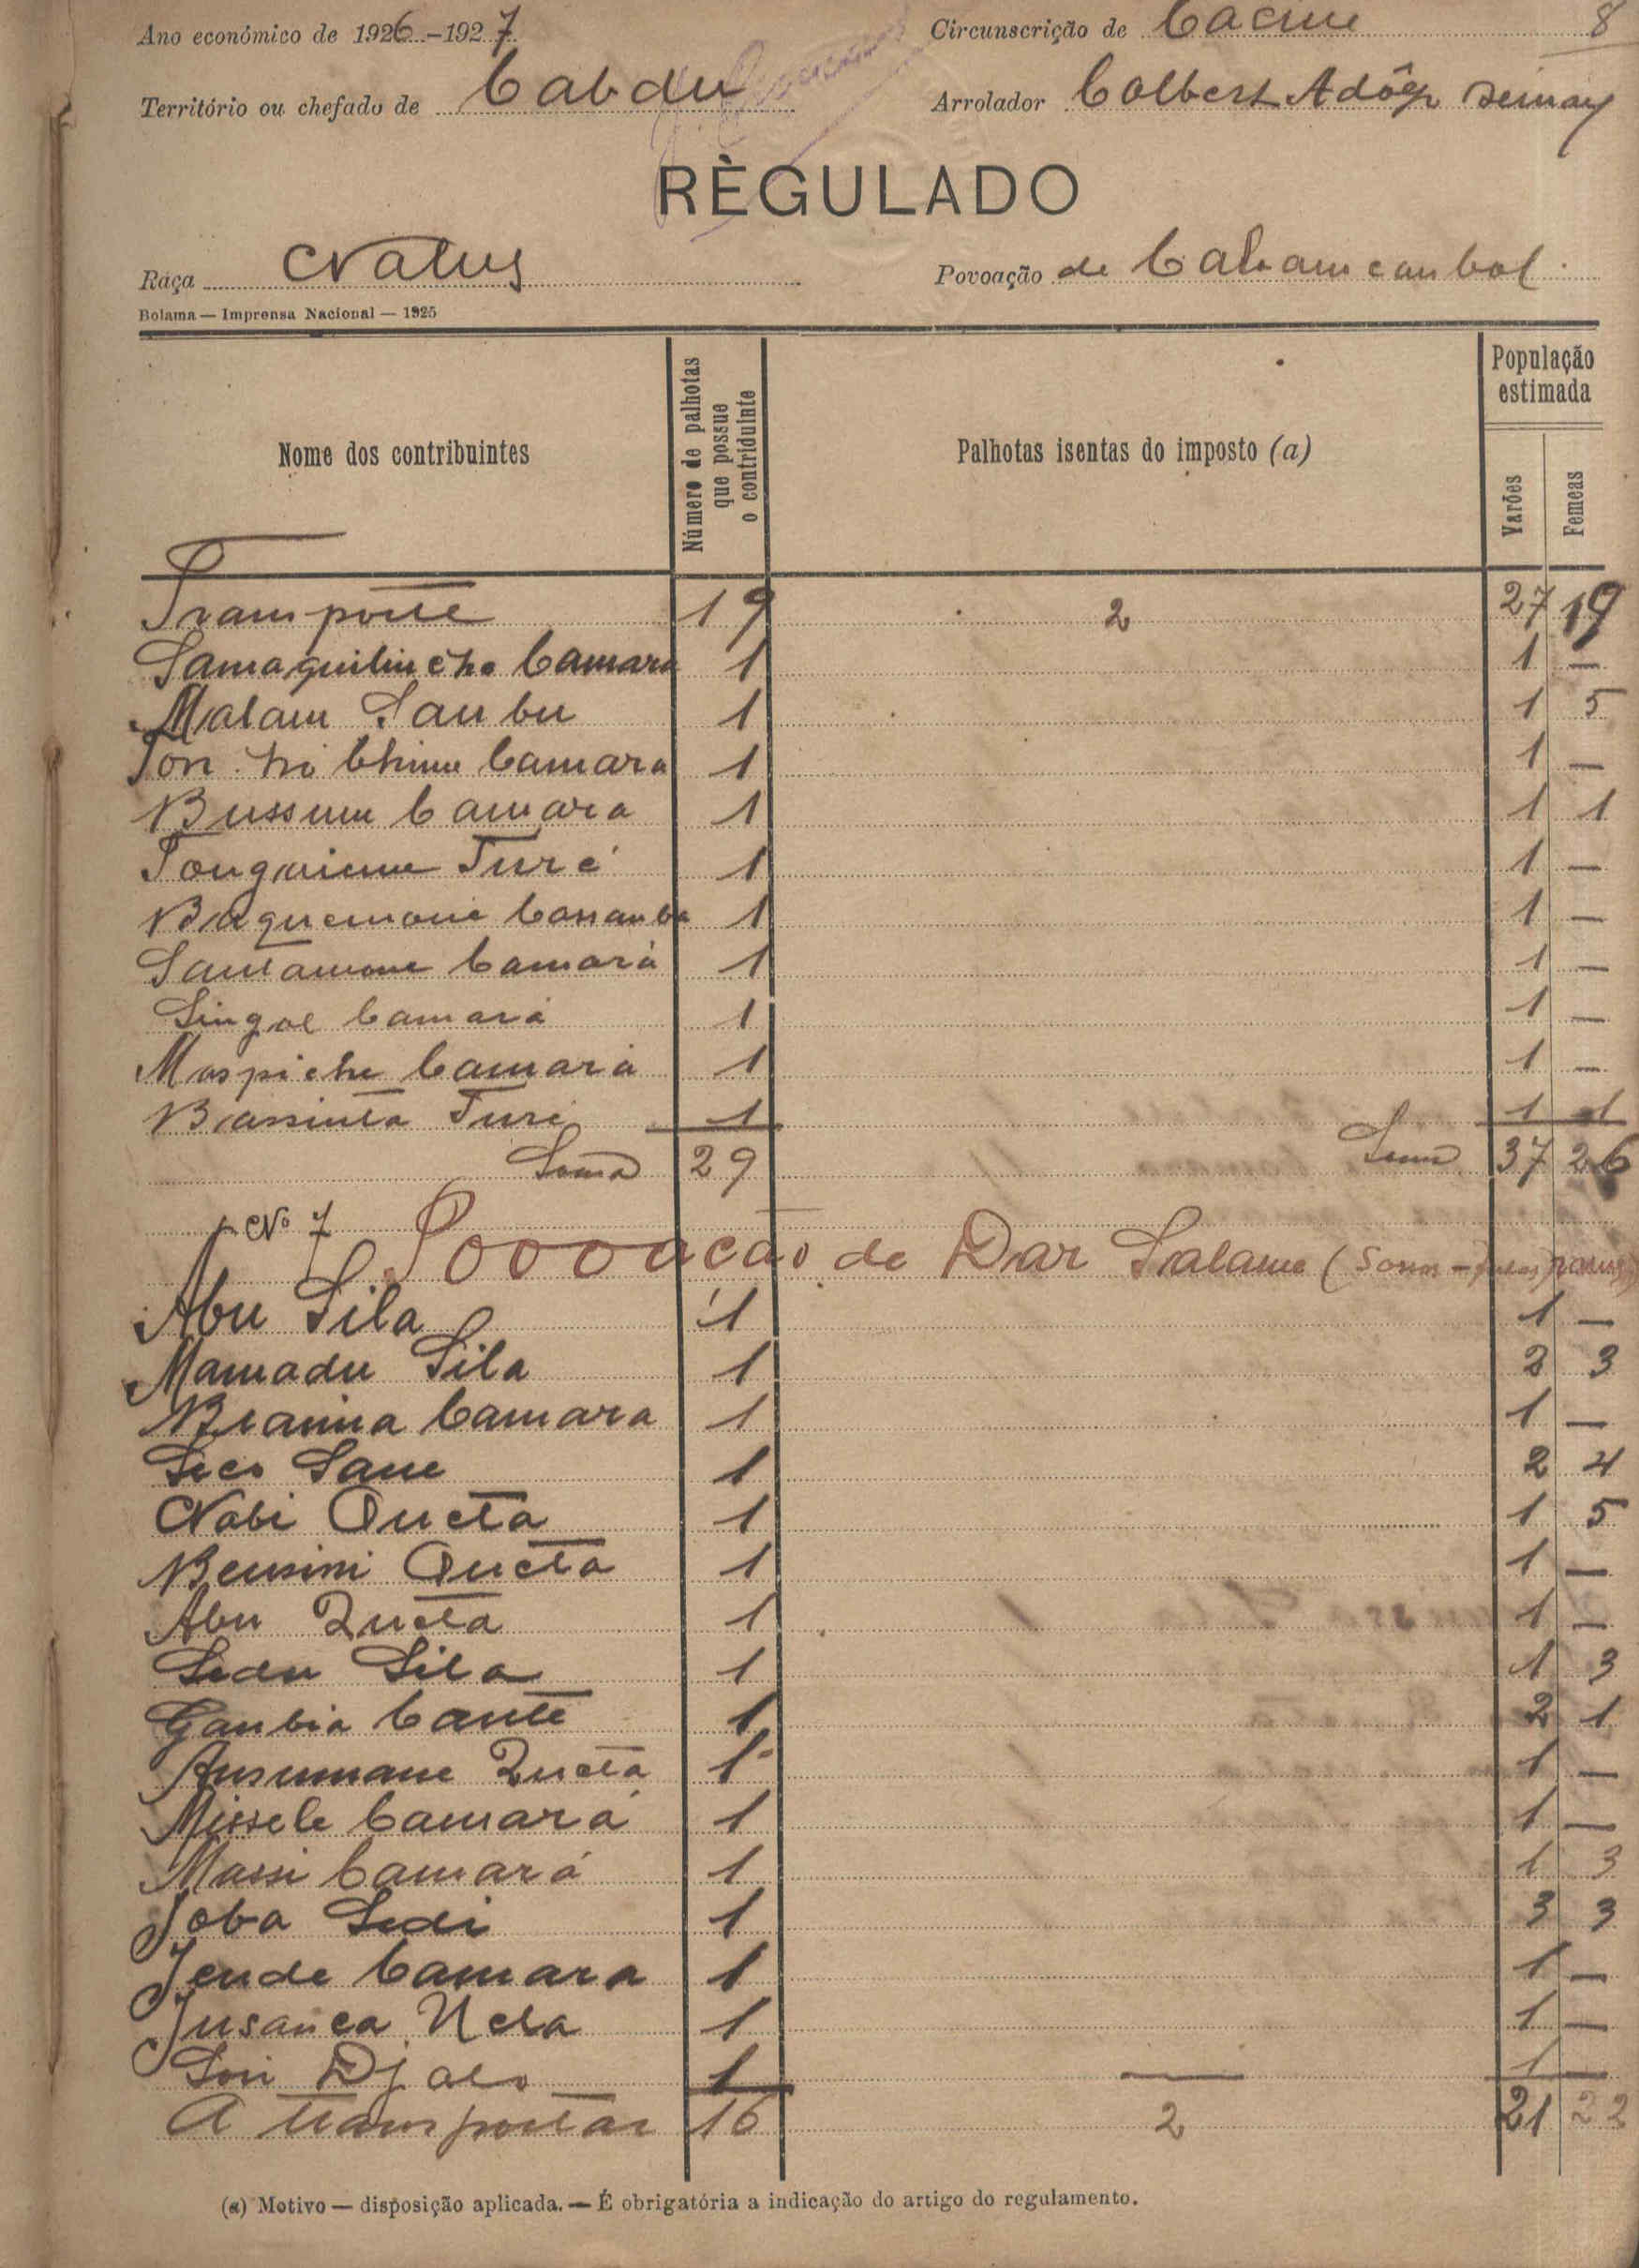 Ano económico de 1926-1927 Circunscrição de Cacine 8
Território ou chefado de Cabdu Arrolador Colbert
RÈGULADO
Raça Nalus Povoação de
Bolama — Imprensa Nacional — 1925
Nome dos contribuintes
Número de palhotas que possue o contriduinte
Palhotas isentas do imposto (a)
População estimada
Varões
Femeas
Transporte 19 2 27 19
Camara 1 1 —
Malam Sambu 1 1 5
Camara 1 1 —
Bussum Camara 1 1 1
Turé 1 1 —
1 1 —
Santamone Camará 1 1 —
Singol Camará 1 1 —
Maspiche Camará 1 1 —
Bassinta Turé 1 1 1
Soma 29 Soma 37 26
Nº 7 Povoacão de Dar Salame
Abu Sila 1 1 —
Mamadu Sila 1 2 3
Camara 1 1 —
Seco Sane 1 2 4
Nabi Queta 1 1 5
Queta 1 1 —
Abu Queta 1 1 —
Sedu Sila 1 1 3
Gambia Cante 1 2 1
Ansumane Queta 1 1 —
Missele Camará 1 1 —
Massi Camará 1 1 3
Joba Sedi 1 3 3
Jende Camara 1 1 —
1 1 —
Sori Djalo 1 — 1 —
A transportar 16 2 21 22
(a) Motivo — disposição aplicada. — É obrigatória a indicação do artigo do regulamento.